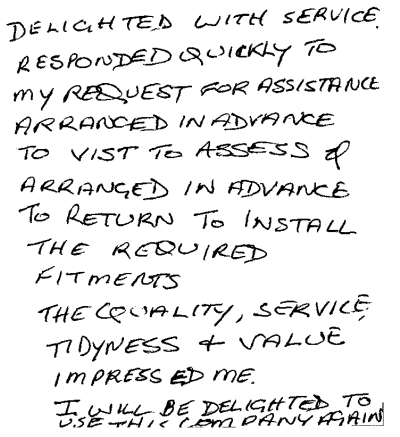 DELIGHTED WITH SERVICE.
RESPONDED QUICKLY TO
MY REQUEST FOR ASSISTANCE
ARRANGED IN ADVANCE
TO VIST TO ASSESS &
ARRANGED IN ADVANCE
TO RETURN TO INSTALL
THE REQUIRED
FITMENTS
THE QUALITY, SERVICE,
TIDYNESS + VALUE
IMPRESSED ME.
I WILL BE DELIGHTED TO
USE THIS COMPANY AGAIN